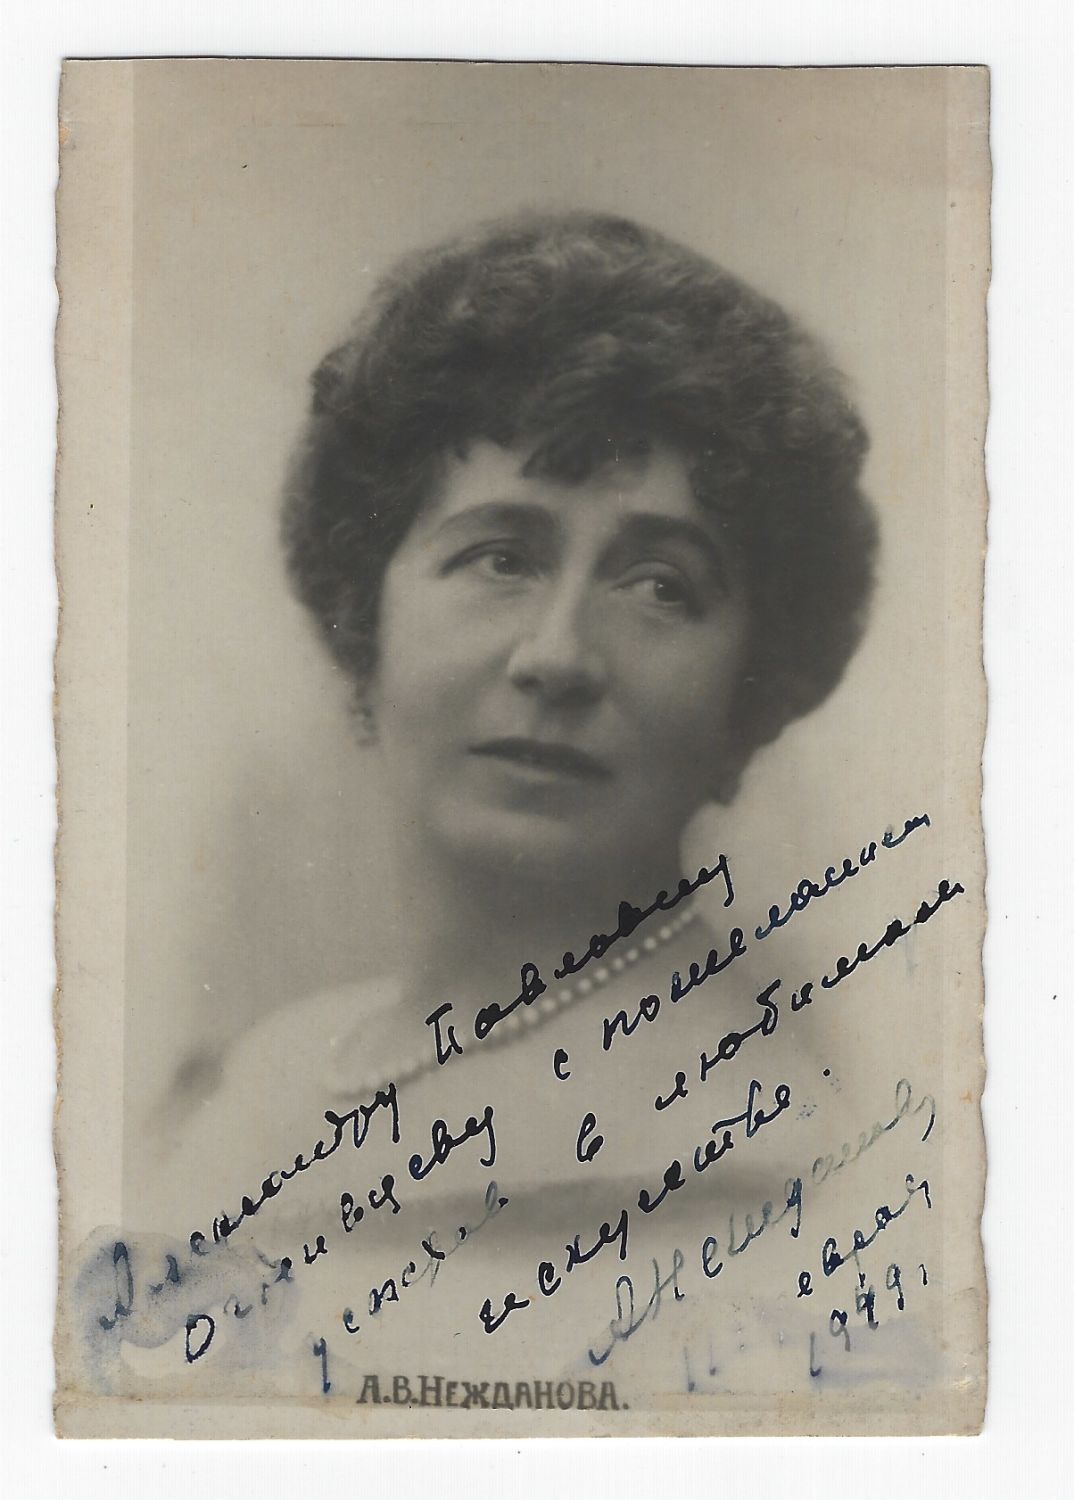 Александру Павловичу
Огнивцеву с пожеланием
успехов в любимом
искусстве.
АНежданова
1949,
А.В.НЕЖДАНОВА.